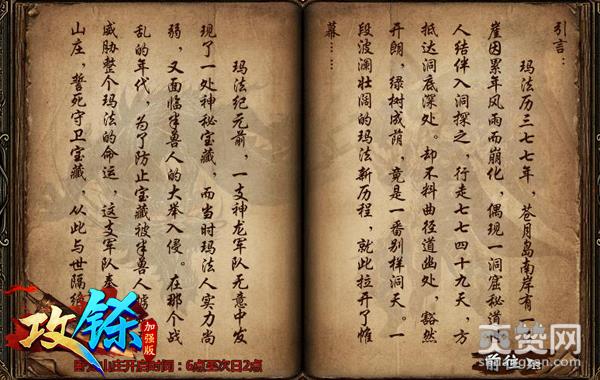 引言：
玛法历三七七年，苍月岛南岸有一
崖因累年风雨而崩化，偶现一洞窟秘道
人结伴入洞探之，行走七七四十九天，方
抵达洞底深处。却不料曲径道幽处，豁然
开朗，绿树成荫，竟是一番别样洞天。一
段波澜壮阔的玛法新历程，就此拉开了帷
幕……
玛法纪元前，一支神龙军队无意中发
现了一处神秘宝藏，而当时玛法人实力尚
弱，又面临半兽人的大举入侵。在那个战
乱的年代，为了防止宝藏被半兽人
威胁整个玛法的命运，这支军队奉
山庄，誓死守卫宝藏 从此与世隔绝
一攻铩
加强版
山庄开启时间：6点至次日2点
前往